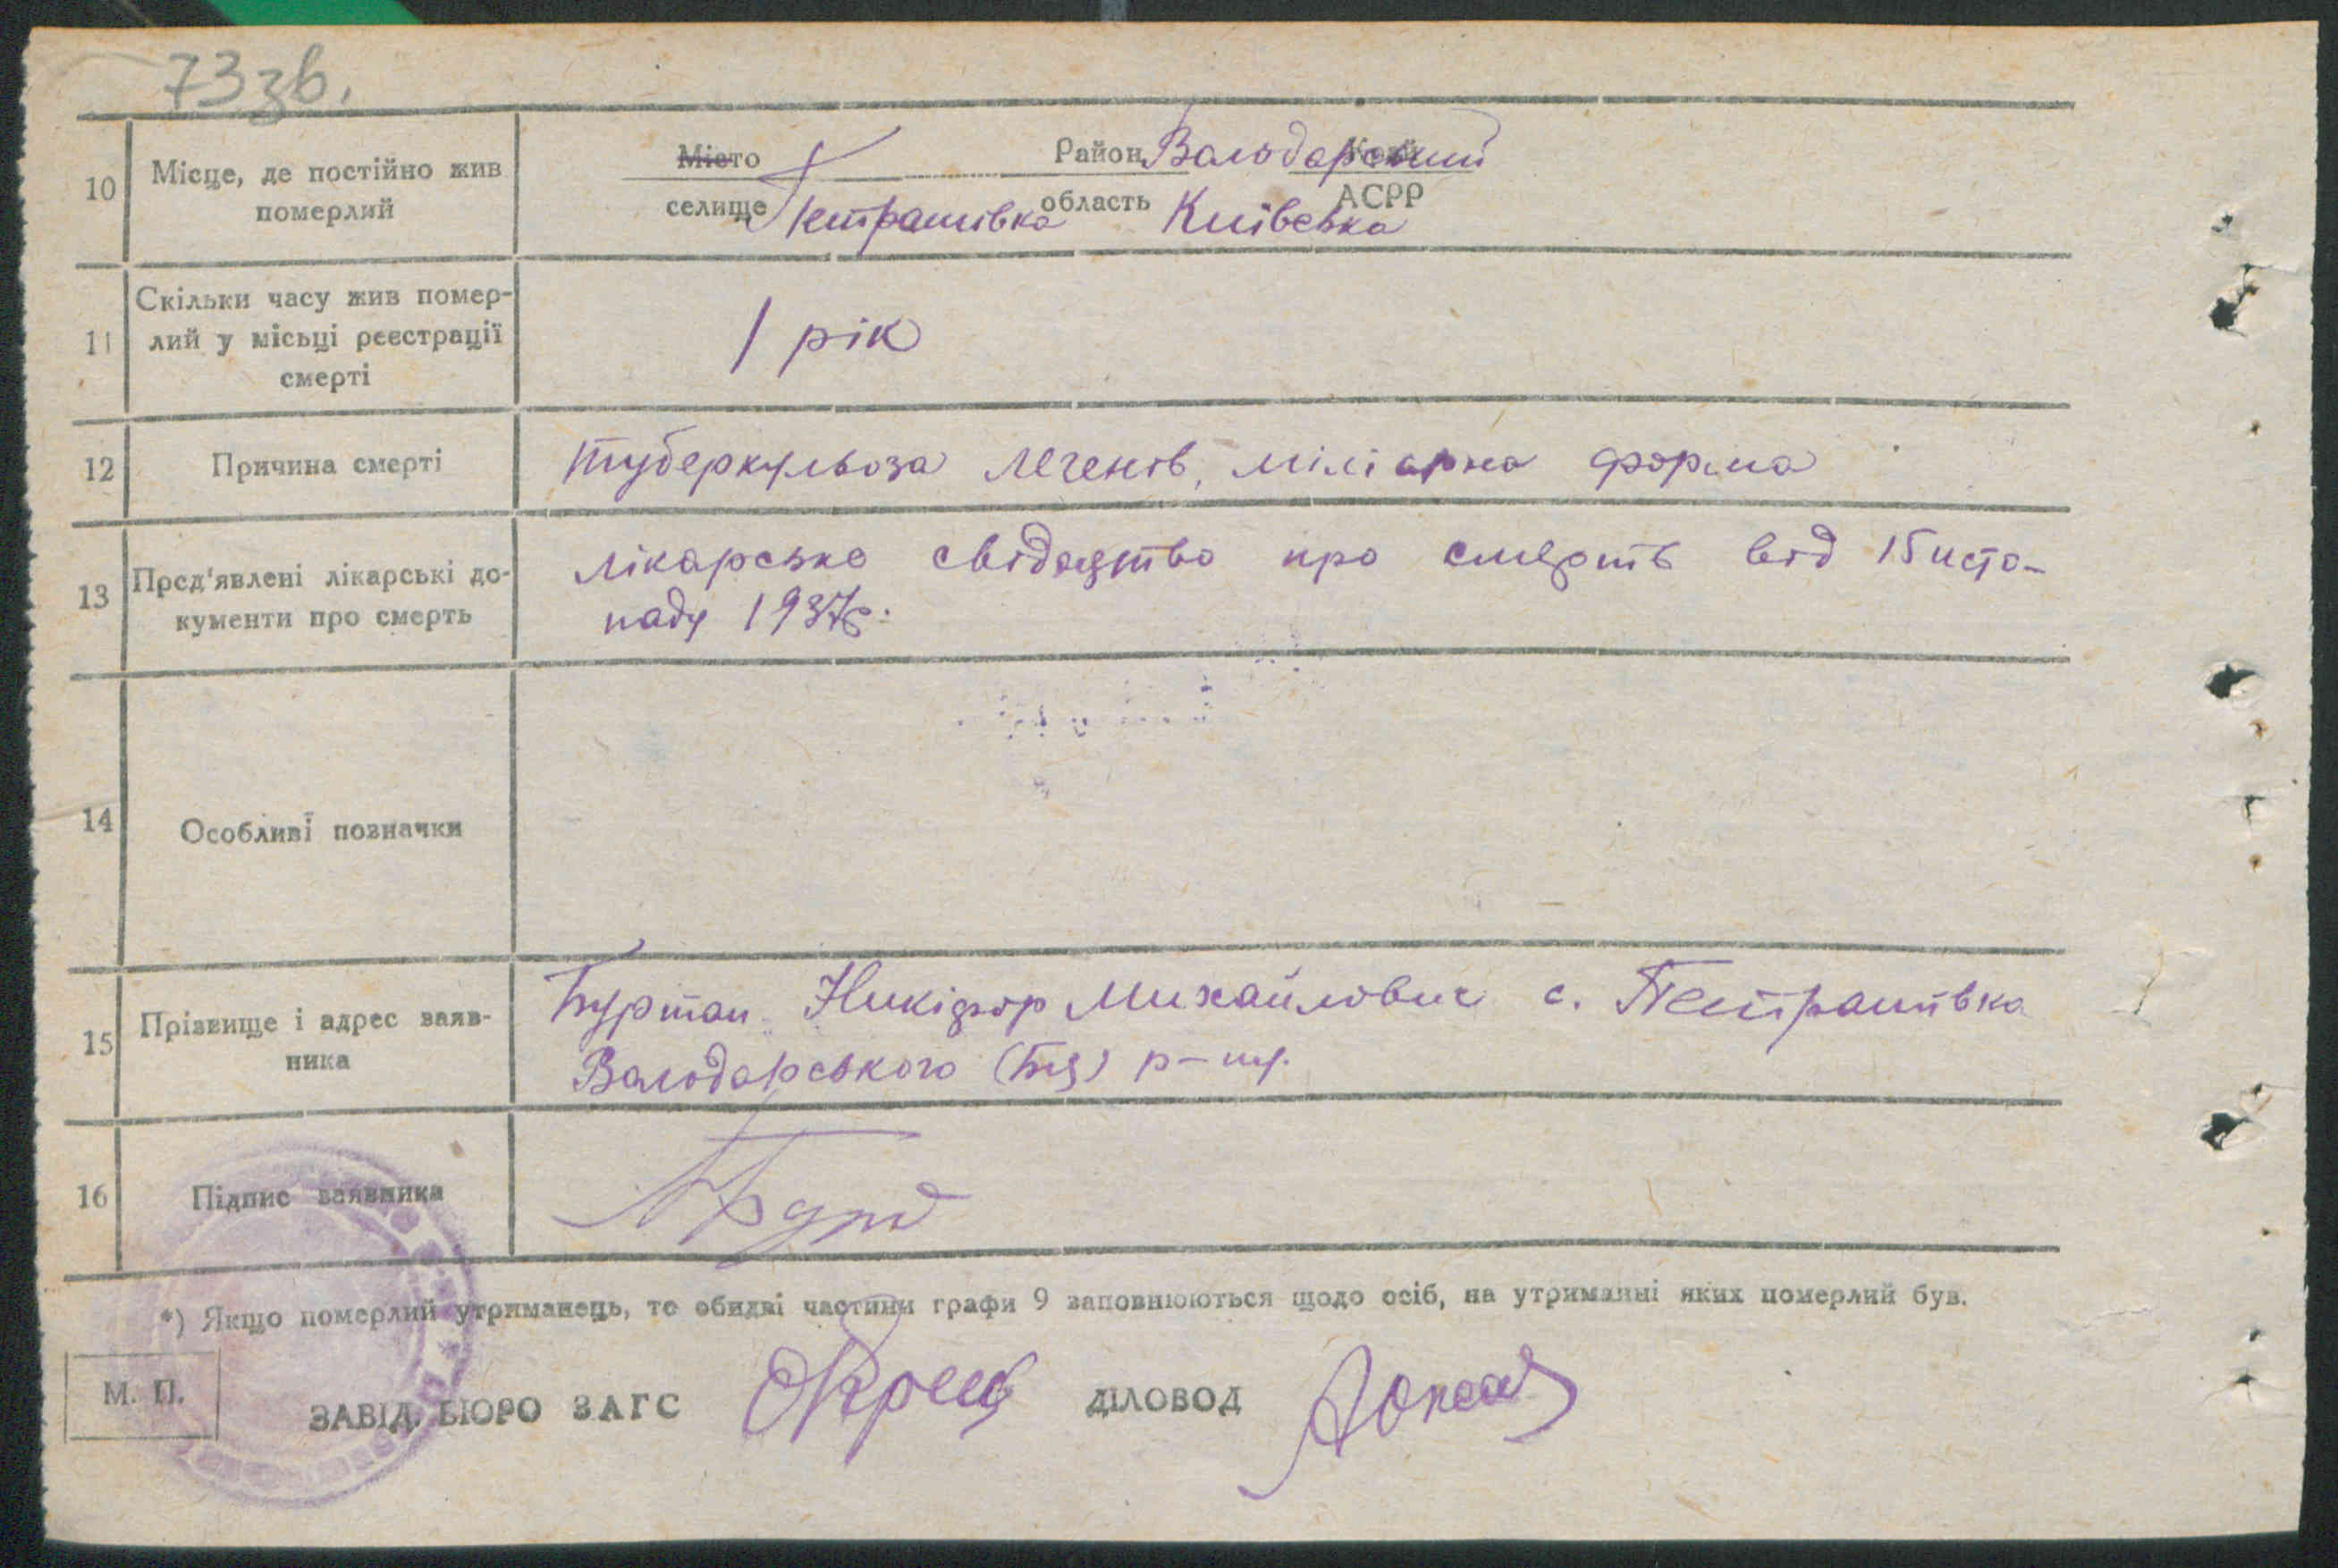 73 зв.
10 Місце, де постійно жив померлий
Місто Район Володарський Край
селище Петрашівка область Київська АСРР
11 Скільки часу жив помер-
лий у місьці реєстрації
смерті
1 рік
12 Причина смерті
туберкульоза легенів, міліарна форма
13 Пред'явлені лікарські до-
кументи про смерть
лікарське свідоцтво про смерть від 15 листо-
паду 1937 р.
14 Особливі позначки
15 Прізвище і адрес заяв-
ника
Буртан Никіфор Михайлович с. Петрашівка
Володарського (Бц) р-ну.
16 Підпис заявника
*) Якщо померлий утриманець, то обидві частини графи 9 заповнюються щодо осіб, на утриманні яких померлий був.
М. П.
ЗАВІД. БЮРО ЗАГС ДІЛОВОД